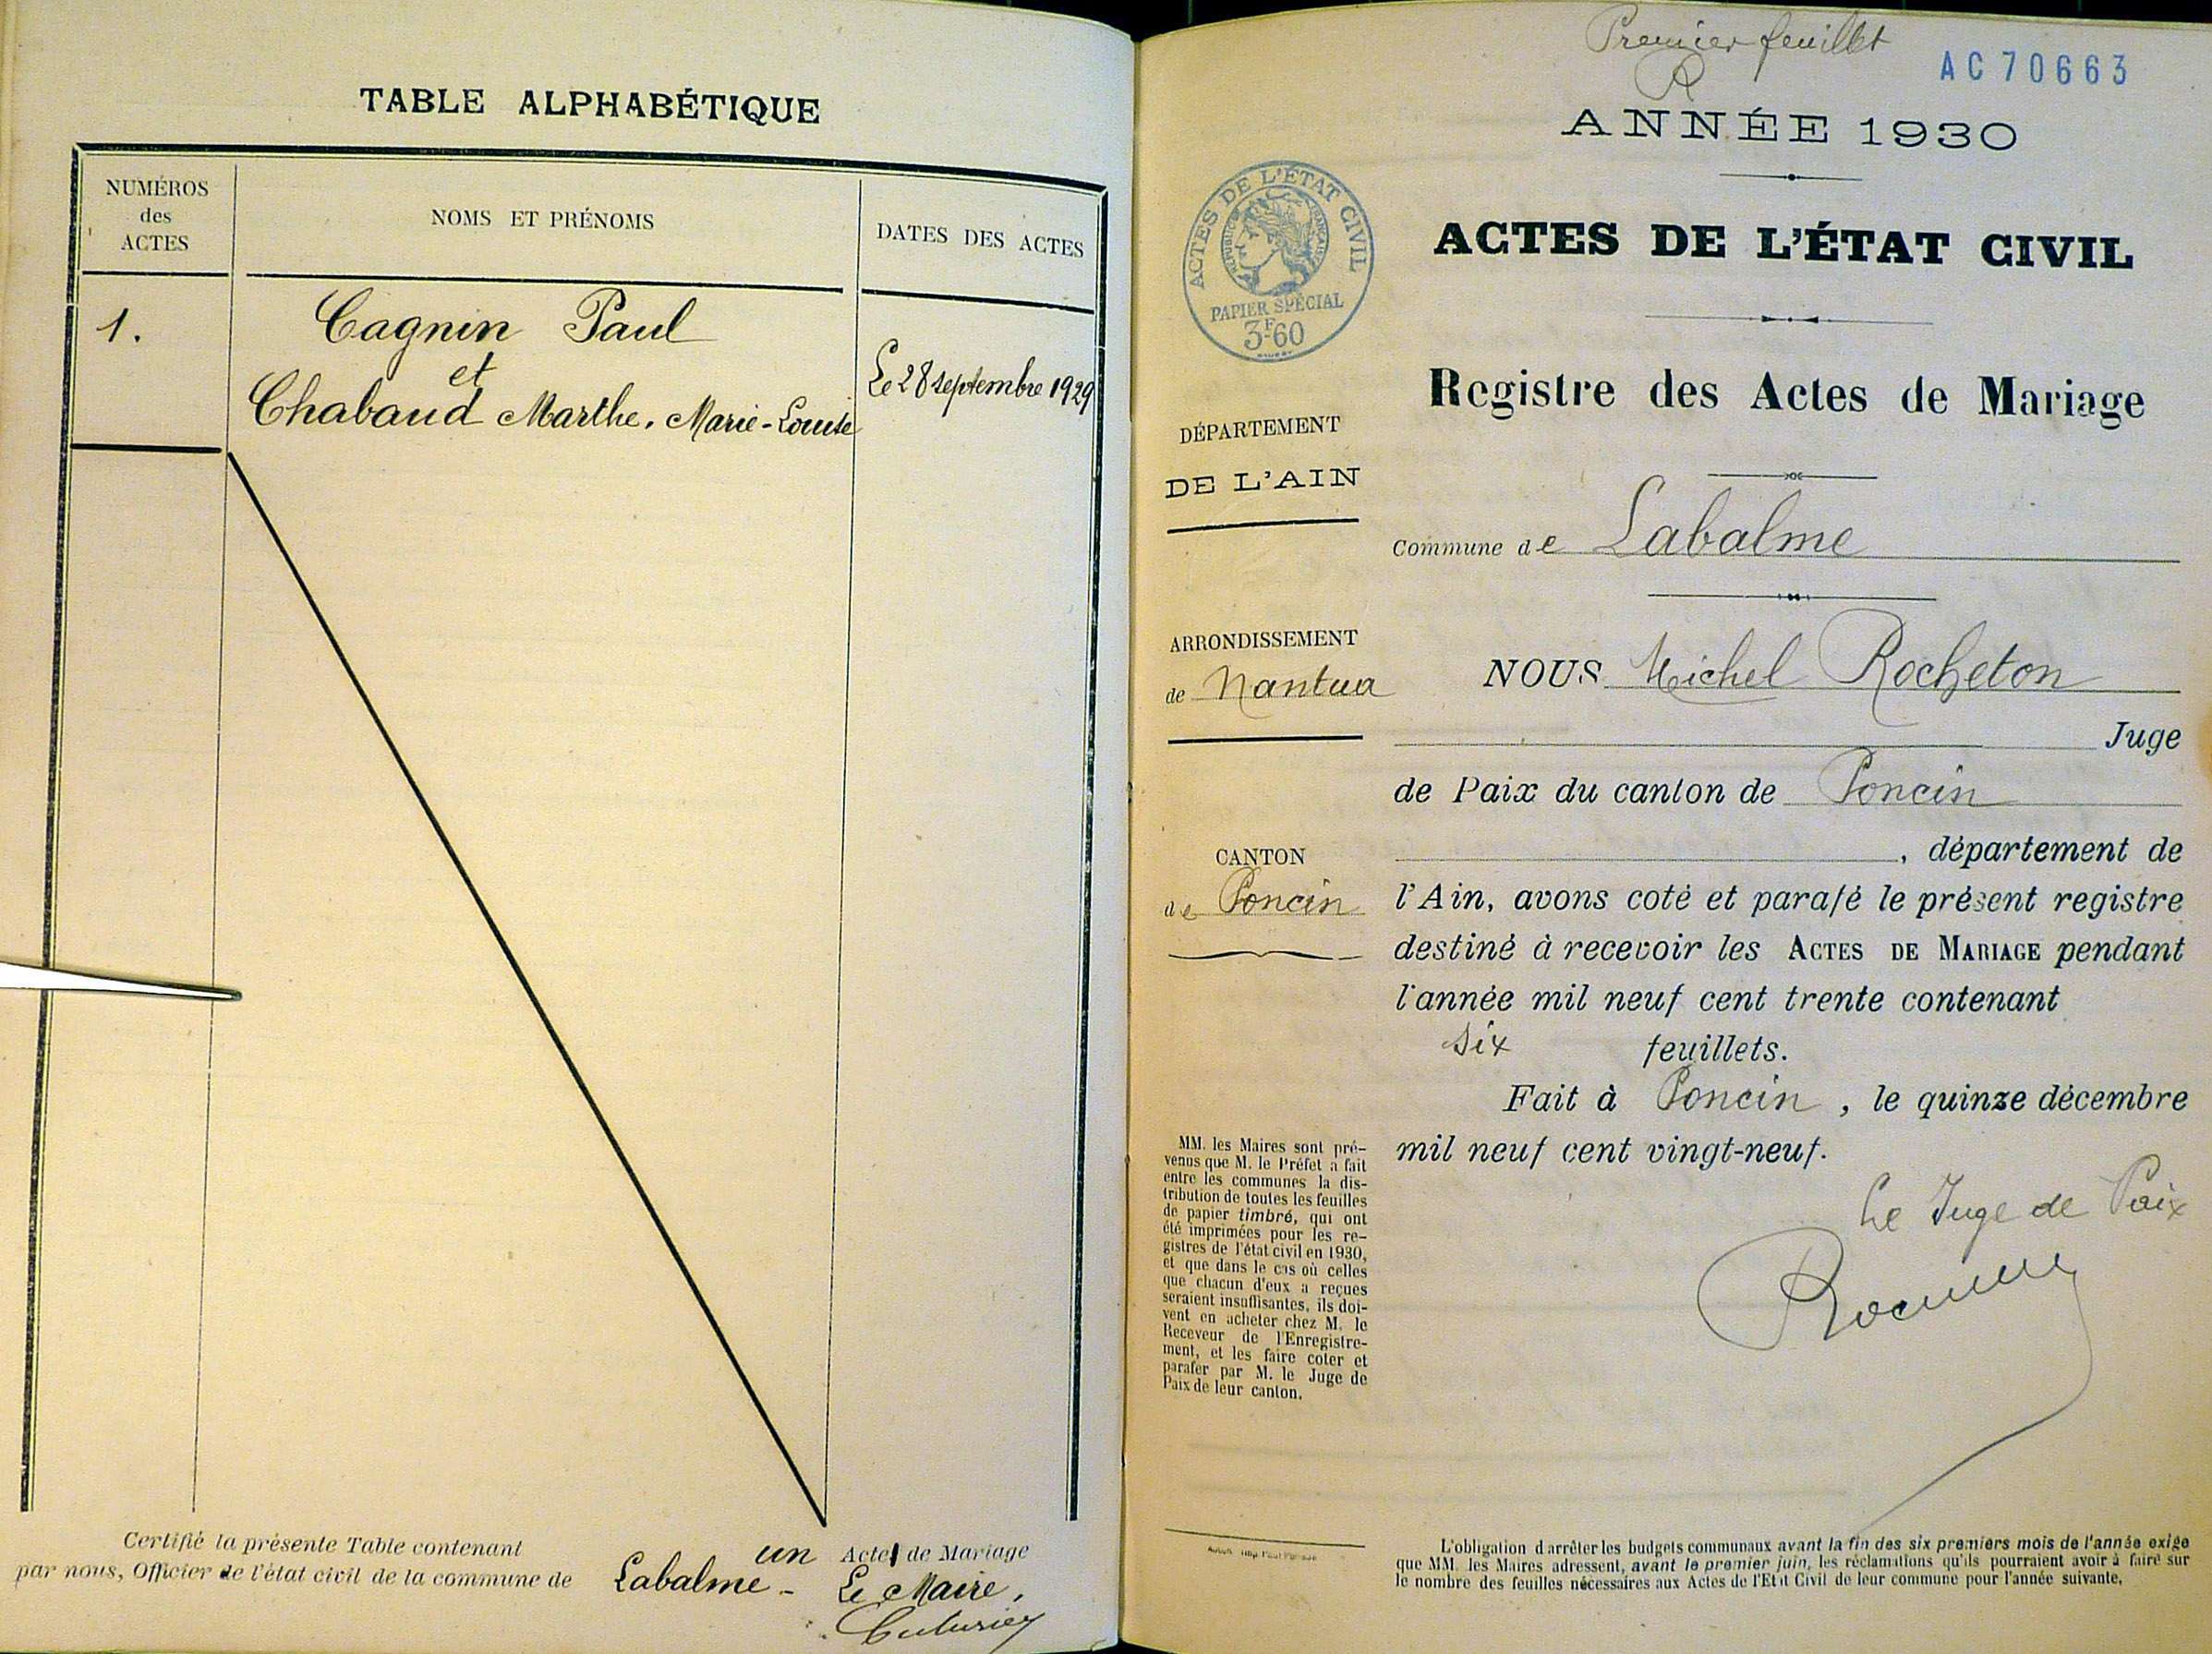 TABLE ALPHABÉTIQUE
NUMÉROS
des
ACTES
NOMS ET PRÉNOMS
DATES DES ACTES
1.
Cagnin Paul
et
Chabaud Marthe. Marie-Louise
Le 28 septembre 1929
Certifié la présente Table contenant un Acte de Mariage
par nous, Officier de l'état civil de la commune de Labalme - Le Maire,
Premier feuillet
R
AC70663
ANNÉE 1930
ACTES DE L'ÉTAT CIVIL
RÉPUBLIQUE FRANÇAISE
PAPIER SPÉCIAL
3F60
ACTES DE L'ÉTAT CIVIL
Registre des Actes de Mariage
DÉPARTEMENT
DE L'AIN
Commune de Labalme
ARRONDISSEMENT
de Nantua
CANTON
de Poncin
NOUS Michel Rocheton
Juge
de Paix du canton de Poncin
, département de
l'Ain, avons coté et parafé le présent registre
destiné à recevoir les ACTES DE MARIAGE pendant
l'année mil neuf cent trente contenant
six feuillets.
Fait à Poncin, le quinze décembre
mil neuf cent vingt-neuf.
Le Juge de Paix
MM. les Maires sont pré-
venus que M. le Préfet a fait
entre les communes la dis-
tribution de toutes les feuilles
de papier timbré, qui ont
été imprimées pour les re-
gistres de l'état civil en 1930,
et que dans le cas où celles
que chacun d'eux a reçues
seraient insuffisantes, ils doi-
vent en acheter chez M. le
Receveur de l'Enregistre-
ment, et les faire coter et
parafer par M. le Juge de
Paix de leur canton.
L'obligation d'arrêter les budgets communaux avant la fin des six premiers mois de l'année exige
que MM. les Maires adressent, avant le premier juin, les réclamations qu'ils pourraient avoir à faire sur
le nombre des feuilles nécessaires aux Actes de l'Etat Civil de leur commune pour l'année suivante.